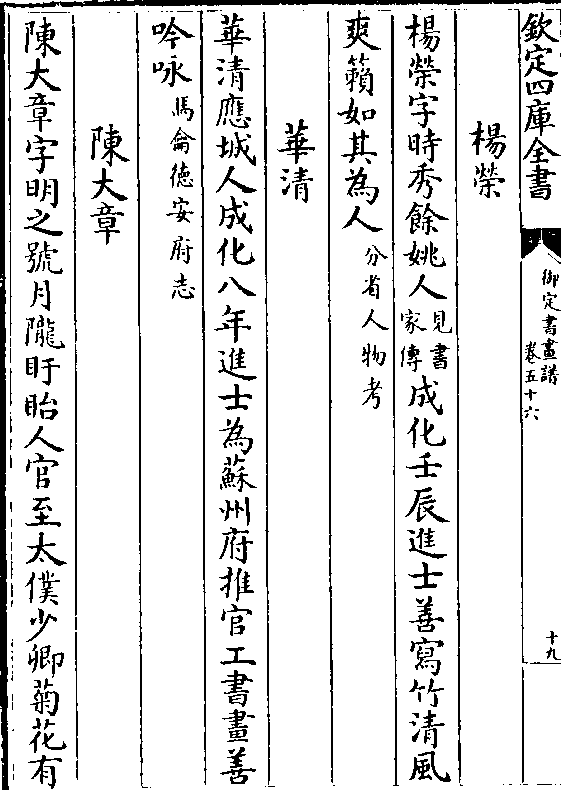 欽定四庫全書
御定書畫譜
卷五十六
十九
楊榮
楊榮字時秀餘姚人見書家傳成化壬辰進士善寫竹清風
爽籟如其為人分省人物考
華清
華清應城人成化八年進士為蘇州府推官工書畫善
吟咏馬侖德安府志
陳大章
陳大章字明之號月隴盱眙人官至太僕少卿菊花有